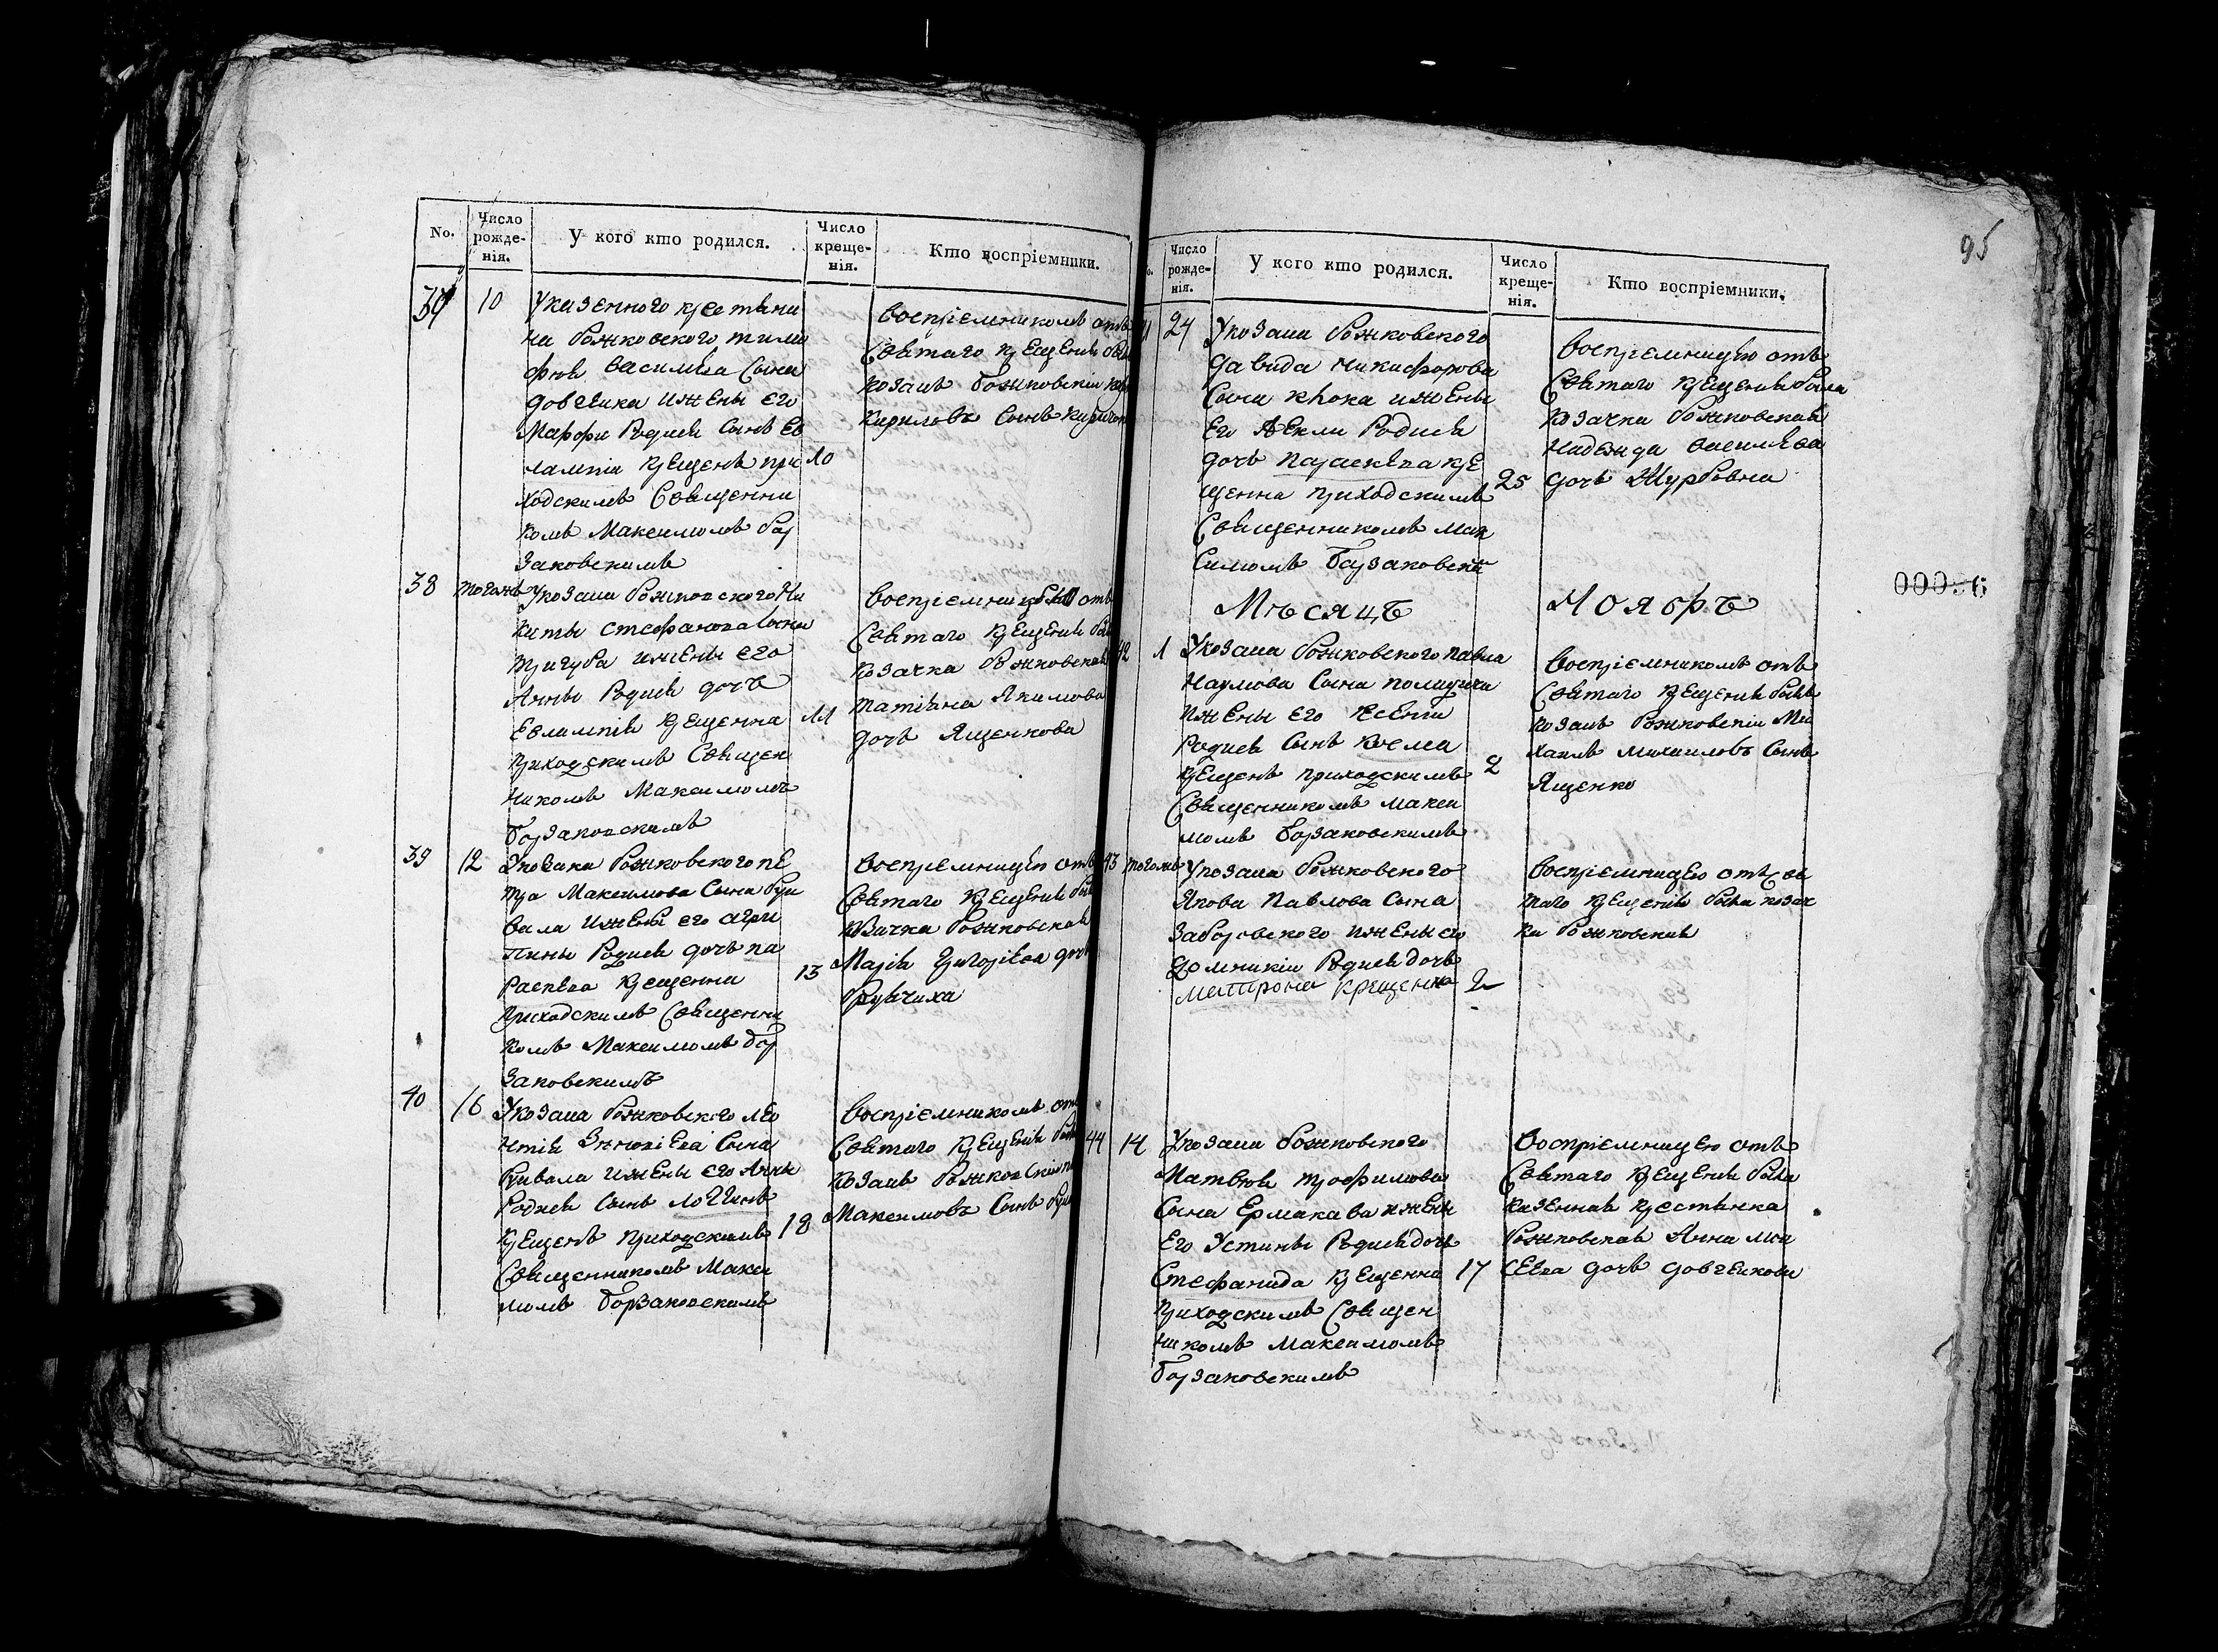 No.
Число рожде-нія.
У кого кто родился.
Число креще-нія.
Кто воспріемники.
37
10
Указенного крестяни
на Рожковского Тимо
фея Василева сына
Довгеика ижены его
Марфы Родися сынъ Ев
лампіи крещенъ при
10
ходскимъ священни
комъ Максимомъ Бор
заковскимъ
воспріемникомъ отъ
святаго крещенія
козакъ Рожковскіи
Кириловъ сынъ
38
тогожъ
Укозака Рожковского Ни
киты Стефанова сына
Тригуба ижены его
Анны Родися дочь
Евлампія крещенна
11
приходскимъ священ
никомъ Максимомъ
Борзаковскимъ
отъ
святаго крещенія
козачка Рожковская
Татіяна Якимова
дочь Ященкова
39
12
Укозака Рожковского Пе
тра Максимова сына Ру
вала ижены его Агри
пины Родися дочь Па
раскева крещенна
13
приходскимъ священни
комъ Максимомъ Бор
заковскимъ
воспріемницею отъ
святаго крещенія
козачка Рожковская
Марія Григоріева дочь
40
16
Укозака Рожковского Лео
нтія сына
ижены его Анны
Родися сынъ Логгинъ
крещенъ приходскимъ
18
священникомъ Макси
момъ Борзаковскимъ
воспріемникомъ отъ
святаго крещенія
козакъ Рожковскіи
Максимовъ сынъ
95
00096
Число рожде-нія.
У кого кто родился.
Число креще-нія.
Кто воспріемники.
24
Укозака Рожковского
Давида Никифорова
сына ижены
его Феклы Родися
дочь Параскева кре
25
щенна приходскимъ
священникомъ Мак
симомъ Борзаковским
воспріемницею отъ
святаго крещенія была
козачка Рожковская
Надежда Василева
дочь Журбовна
Мѣсяцъ
Ноябръ
42
1
Укозака Рожковского Павла
Наумова сына
ижены его Ксеніи
Родися сынъ Косма
крещенъ приходскимъ
2
священникомъ Макси
момъ Борзаковскимъ
воспріемникомъ отъ
святаго крещенія былъ
козакъ Рожковскіи Ми
хаилъ Михаиловъ сынъ
Ященко
43
тогожъ
Укозака Рожковского
Якова Павлова сына
Заборовского ижены его
Домникіи Родися дочь
Матрона крещенна
2
воспріемницею отъ свя
таго крещенія была козач
ка Рожковская
44
14
Укозака Рожковского
Матвея Трофимова
сына Ермакава ижены
его Устины Родися дочь
Стефанида крещенна
17
приходскимъ священ
никомъ Максимомъ
Борзаковскимъ
воспріемницею отъ
святаго крещенія была
казенная крестянка
Рожковская Анна Мои
сеева дочь Довгеикова